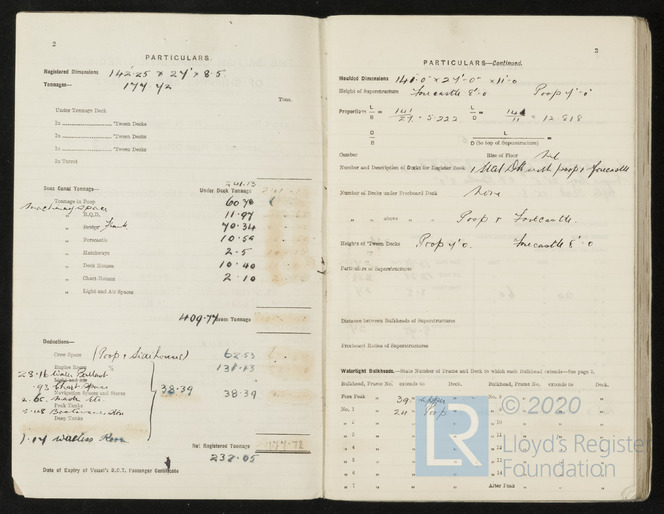 2
PARTICULARS.
Registered Dimensions 142.25 x 27' x 8.5
Tonnages— 177.72
Tons.
Under Tonnage Deck
In 'Tween Decks
In 'Tween Decks
In 'Tween Decks
In Turret
241.13
Suez Canal Tonnage— Under Deck Tonnage
Tonnage in Poop 60.78
Machinery Space
" R.Q.D. 11.97
" Bridge 70.34
" Forecastle 10.56
" Hatchways 2.5
" Deck Houses 10.40
" Chart Houses 2.10
" Light and Air Spaces
409.77 Gross Tonnage
Deductions—
Crew Space (Poop & Sidehouses) 62.53
Engine Room
Water Ballast
.93 Chart Space
Navigation Spaces and Stores 38.39 38.39
Peak Tanks
Deep Tanks
1.04 Wireless Room
Net Registered Tonnage 177.72
232.05
Date of Expiry of Vessel's B.O.T. Passenger Certificate
3
PARTICULARS—Continued.
Moulded Dimensions 141.0" x 27'-0" x 11'.0
Height of Superstructure Forecastle 8'.0 Poop 7'.0
Proportions L/B = 141/27 = 5.222 L/D = 141/11 = 12.818
D/B L/D (to top of Superstructure) =
Camber Rise of Floor Nil
Number and Description of Decks for Register Book 1 Steel Dk with poop & forecastle
Number of Decks under Freeboard Deck None
" " above " " Poop & Forecastle.
Heights of 'Tween Decks Poop 7'.0. Forecastle 8'.0
Particulars of Superstructure
Distance between Bulkheads of Superstructures
Freeboard Ratios of Superstructures
Watertight Bulkheads.—State Number of Frame and Deck to which each Bulkhead extends—See page 2.
Bulkhead, Frame No. extends to Deck. Bulkhead, Frame No. extends to Deck.
Fore Peak " 39 " upper " No. 8 " "
No. 1 " 24 " Poop " 9 " "
" 2 " " " 10 " "
" 3 " " " 11
" 4 " " " 12
" 5 " " " 13
" 6 " " " 14
" 7 " " After Peak
© 2020
LR
Lloyd's Register
Foundation